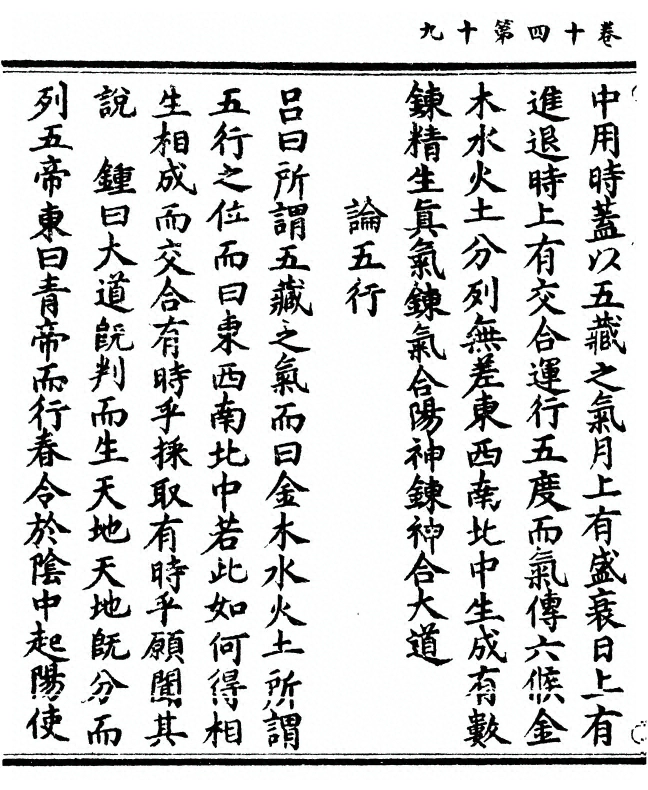 卷十四第十九
中用時蓋以五藏之氣月上有盛衰日上有
進退時上有交合運行五度而氣傳六候金
木水火土分列無差東西南北中生成有數
鍊精生眞氣鍊氣合陽神鍊神合大道
論五行
呂曰所謂五藏之氣而曰金木水火土所謂
五行之位而曰東西南北中若此如何得相
生相成而交合有時乎採取有時乎願聞其
說　鍾曰大道旣判而生天地天地旣分而
列五帝東曰青帝而行春令於陰中起陽使